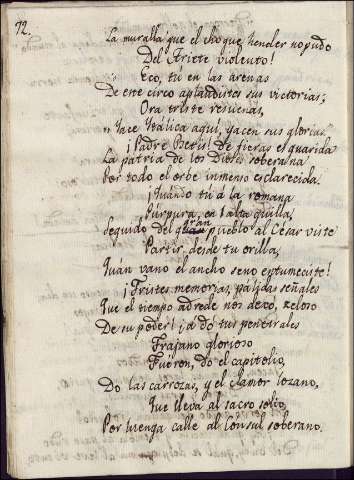 92.
La muralla que el choque hender no pudo
Del Ariete violento!
Eco, tú en las arenas
De este circo aplaudistes sus victorias;
Ora triste resuenas,
"Yace Itálica aquí, yacen sus glorias."
¡Padre Betis! de fieras es guarida
La patria de los Dioses soberana
Por todo el orbe inmenso esclarecida.
¡Quándo tú a la romana
Púrpura, en l'alta quilla,
Seguido del gran pueblo al César viste
Partir, desde tu orilla,
Quán vano el ancho seno entumeciste!
¡Tristes memorias, pálidas señales
Que el tiempo adrede nos dexó, zeloso
De su poder! ¡a dó tus penetrales
Trajano glorioso
Fueron, dó el capitolio,
Do las carrozas, y el clamor lozano,
Que lleva al sacro solio,
Por luenga calle al Consul soberano.